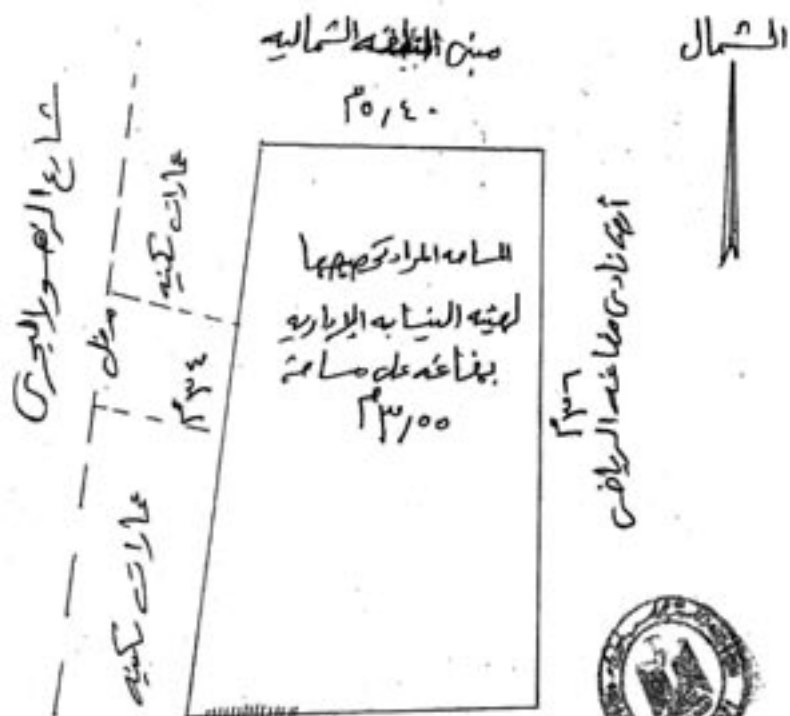 الشمال
مبنى الشماليه
٥,٤٠م
شارع الزهور البحرى
عمارات سكنيه
مدخل
عمارات سكنيه
٣٤م
المساحه المراد تخصيصها
لهيئه النيابه الإداريه
بمغاغه على مساحة
٣,٥٥م
٣٦م
أرض نادى مغاغه الرياضى